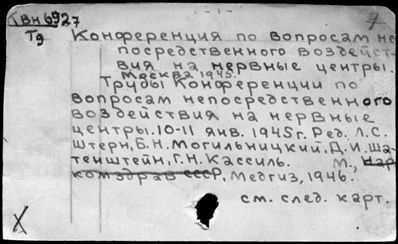 ТВн6927
Т9 Конференция по вопросам не
посредственного воздейст-
вия на нервные центры.
Москва 1945.
Труды Конференции по
вопросам непосредственного
воздействия на нервные
центры. 10-11 янв. 1945г. Ред. Л.С.
Штерн, Б.Н. Могильницкий, Д.И. Ша-
тенштейн, Г.Н. Кассиль. М., Нар
комздрав СССР, Медгиз, 1946.
см. след. карт.
X